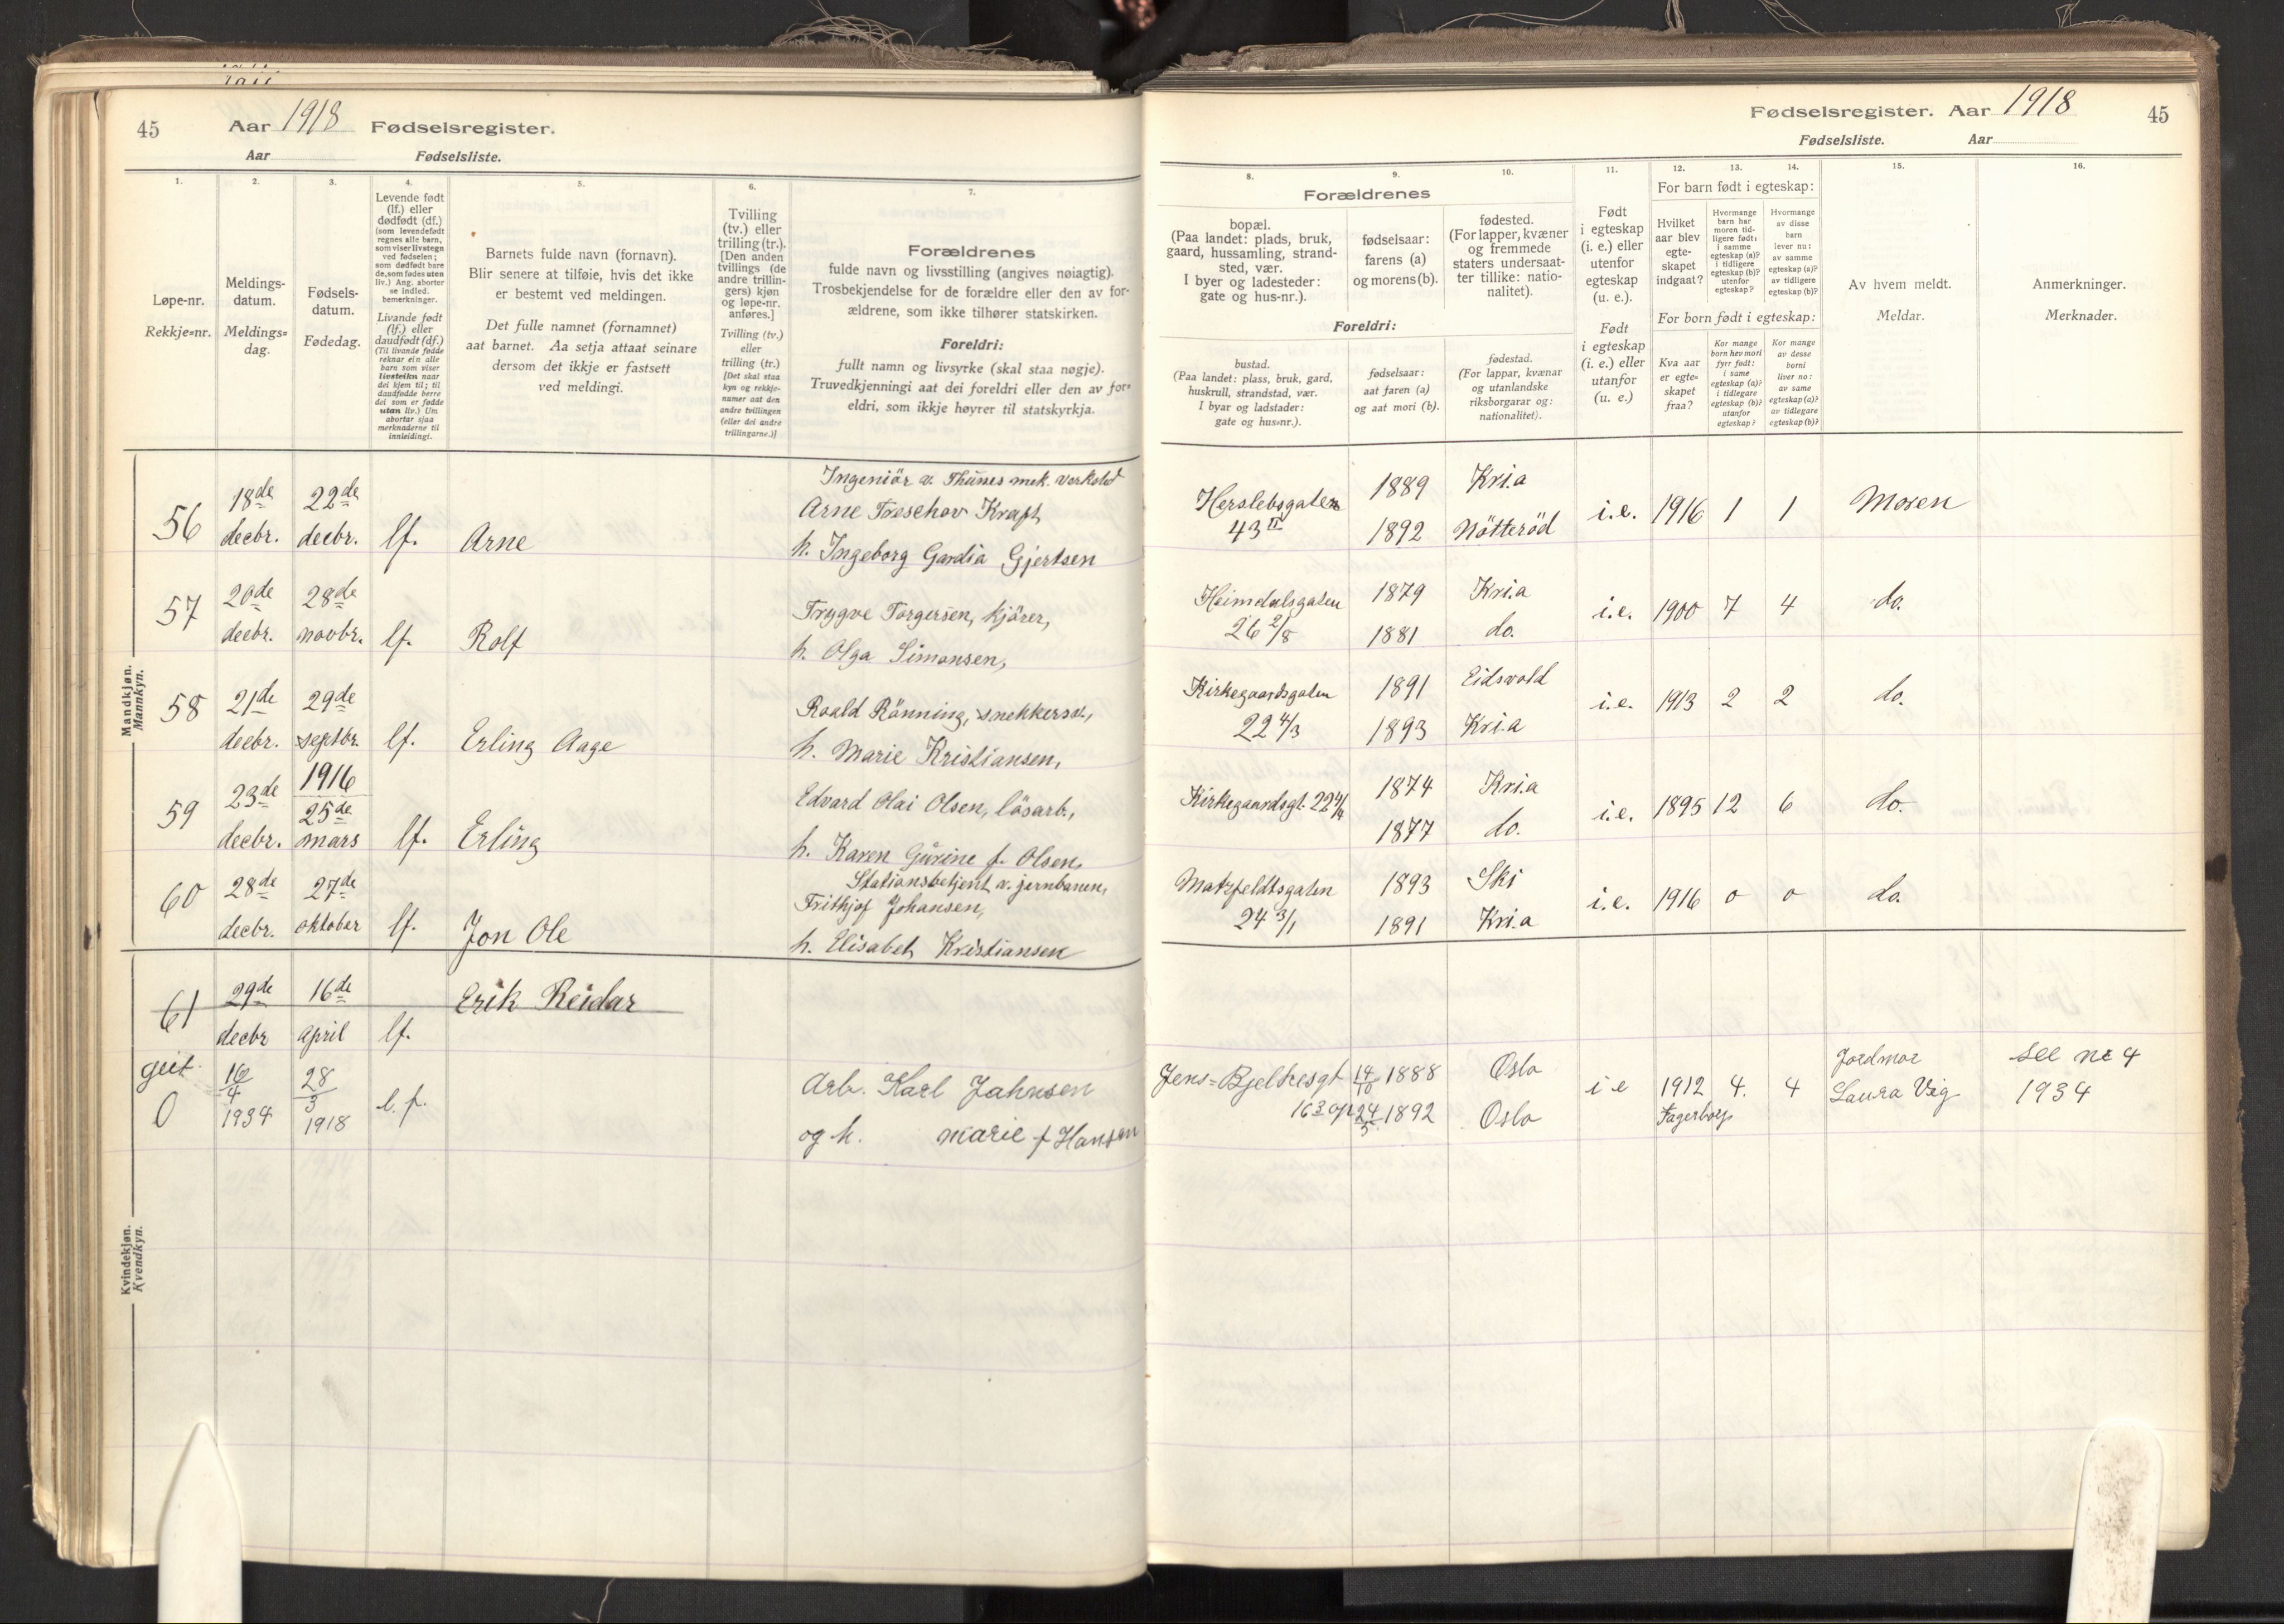 45
Aar 1918 Fødselsregister.
Aar Fødselsliste.
1.
2.
3.
4.
5.
6.
7.
Løpe-nr.
Rekkje=nr.
Meldings-
datum.
Meldings=
dag.
Fødsels-
datum.
Fødedag.
Levende født
(lf.) eller
dødfødt (df.)
(som levendefødt
regnes alle barn,
som viser livstegn
ved fødselen;
som dødfødt bare
de, som fødes uten
liv.) Ang. aborter
se indled.
bemerkninger.
Livande født
(lf.) eller
daudfødt (df.)
(Til livande fødde
reknar ein alle
barn som viser
livsteikn naar
dei kjem til; til
daudfødde berre
dei som er fødde
utan liv.) Um
abortar sjaa
merknaderne til
innleidingi.
Barnets fulde navn (fornavn).
Blir senere at tilføie, hvis det ikke
er bestemt ved meldingen.
Det fulle namnet (fornamnet)
aat barnet. Aa setja attaat seinare
dersom det ikkje er fastsett
ved meldingi.
Tvilling
(tv.) eller
trilling (tr.).
[Den anden
tvillings (de
andre trillin-
gers) kjøn
og løpe-nr.
anføres.]
Tvilling (tv.)
eller
trilling (tr.)
[Det skal staa
kyn og rekkje-
numer aat den
andre tvillingen
(eller dei andre
trillingarne.)]
Forældrenes
fulde navn og livsstilling (angives nøiagtig).
Trosbekjendelse for de forældre eller den av for-
ældrene, som ikke tilhører statskirken.
Foreldri:
fullt namn og livsyrke (skal staa nøgje).
Truvedkjenningi aat dei foreldri eller den av for=
eldri, som ikkje høyrer til statskyrkja.
Mandkjøn.
Mannkyn.
56 18de decbr. 22de decbr. lf. Arne
Ingeniör v. Thunes mek. verksted
Arne Treschov Kraft
h. Ingeborg Gardia Gjertsen
57 20de decbr. 28de novbr. lf. Rolf
Trygve Torgersen, kjörer,
h. Olga Simonsen,
58 21de decbr. 29de septbr. lf. Erling Aage
Roald Rönning, snekkersv.,
h. Marie Kristiansen,
59 23de decbr. 1916 25de mars lf. Erling
Edvard Olai Olsen, lösarb.,
h. Karen Gurine f. Olsen,
60 28de decbr. 27de oktober lf. Jon Ole
Stationsbetjent v. jernbanen,
Frithjof Johansen,
h. Elisabet Kristiansen
61 29de decbr 16de april lf. Erik Reidar
gut
0 16/4 1934 28/3 1918 l. f.
Arb. Karl Johnsen
og h. Marie f Hansen
Kvindekjøn.
Kvendkyn.
Fødselsregister. Aar 1918
45
Fødselsliste. Aar
8.
9.
10.
11.
12.
13.
14.
15.
16.
Forældrenes
bopæl.
(Paa landet: plads, bruk,
gaard, hussamling, strand-
sted, vær.
I byer og ladesteder:
gate og hus-nr.).
fødselsaar:
farens (a)
og morens (b).
fødested.
(For lapper, kvæner
og fremmede
staters undersaat-
ter tillike: natio-
nalitet).
Foreldri:
bustad.
(Paa landet: plass, bruk, gard,
huskrull, strandstad, vær.
I byar og ladstader:
gate og hus=nr.).
fødselsaar:
aat faren (a)
og aat mori (b).
fødestad.
(For lappar, kvænar
og utanlandske
riksborgarar og:
nationalitet).
Født
i egteskap
(i. e.) eller
utenfor
egteskap
(u. e.).
Født
i egteskap
(i. e.) eller
utanfor
(u. e.)
For barn født i egteskap:
Hvilket
aar blev
egte-
skapet
indgaat?
Hvormange
barn har
moren tid-
ligere født:
i samme
egteskap (a)?
i tidligere
egteskap (b)?
utenfor
egteskap?
Hvormange
av disse
barn
lever nu:
av samme
egteskap (a)?
av tidligere
egteskap (b)?
For born født i egteskap:
Kva aar
er egte=
skapet
fraa?
Kor mange
born hev mori
fyrr født:
i same
egteskap (a)?
i tidlegare
egteskap (b)?
utanfor
egteskap?
Kor mange
av desse
borni
liver no:
av same
egteskap (a)?
av tidlegare
egteskap (b)?
Av hvem meldt.
Meldar.
Anmerkninger.
Merknader.
Herslebsgaten 43 II 1889 Kr.i.a i.e. 1916 1 1 Moren
1892 Nötteröd
Heimdalsgaten 26 2/8 1879 Kr.i.a i.e. 1900 7 4 do.
1881 do.
Kirkegaardsgaten 22 4/3 1891 Eidsvold i.e. 1913 2 2 do.
1893 Kr.i.a
Kirkegaardsgt. 22 4/4 1874 Kr.i.a i.e. 1895 12 6 do.
1877 do.
Matzfeldtsgaten 24 3/1 1893 Ski i.e. 1916 0 0 do.
1891 Kr.i.a
Jens=Bjelkesgt 14/10 1888 Oslo i e 1912 4. 4 Jordmor see nr 4
16 3 op 24/5 1892 Oslo Fagerborg Laura Vig 1934